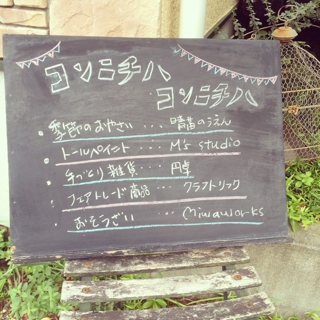 コンニチハ
コンニチハ
・季節のおやさい・・・晴苗のうえん
・トールペイント・・・M's studio
・手づくり雑貨・・・円卓
・フェアトレード商品・・クラフトリック
・おそうざい・・・Miwaworks